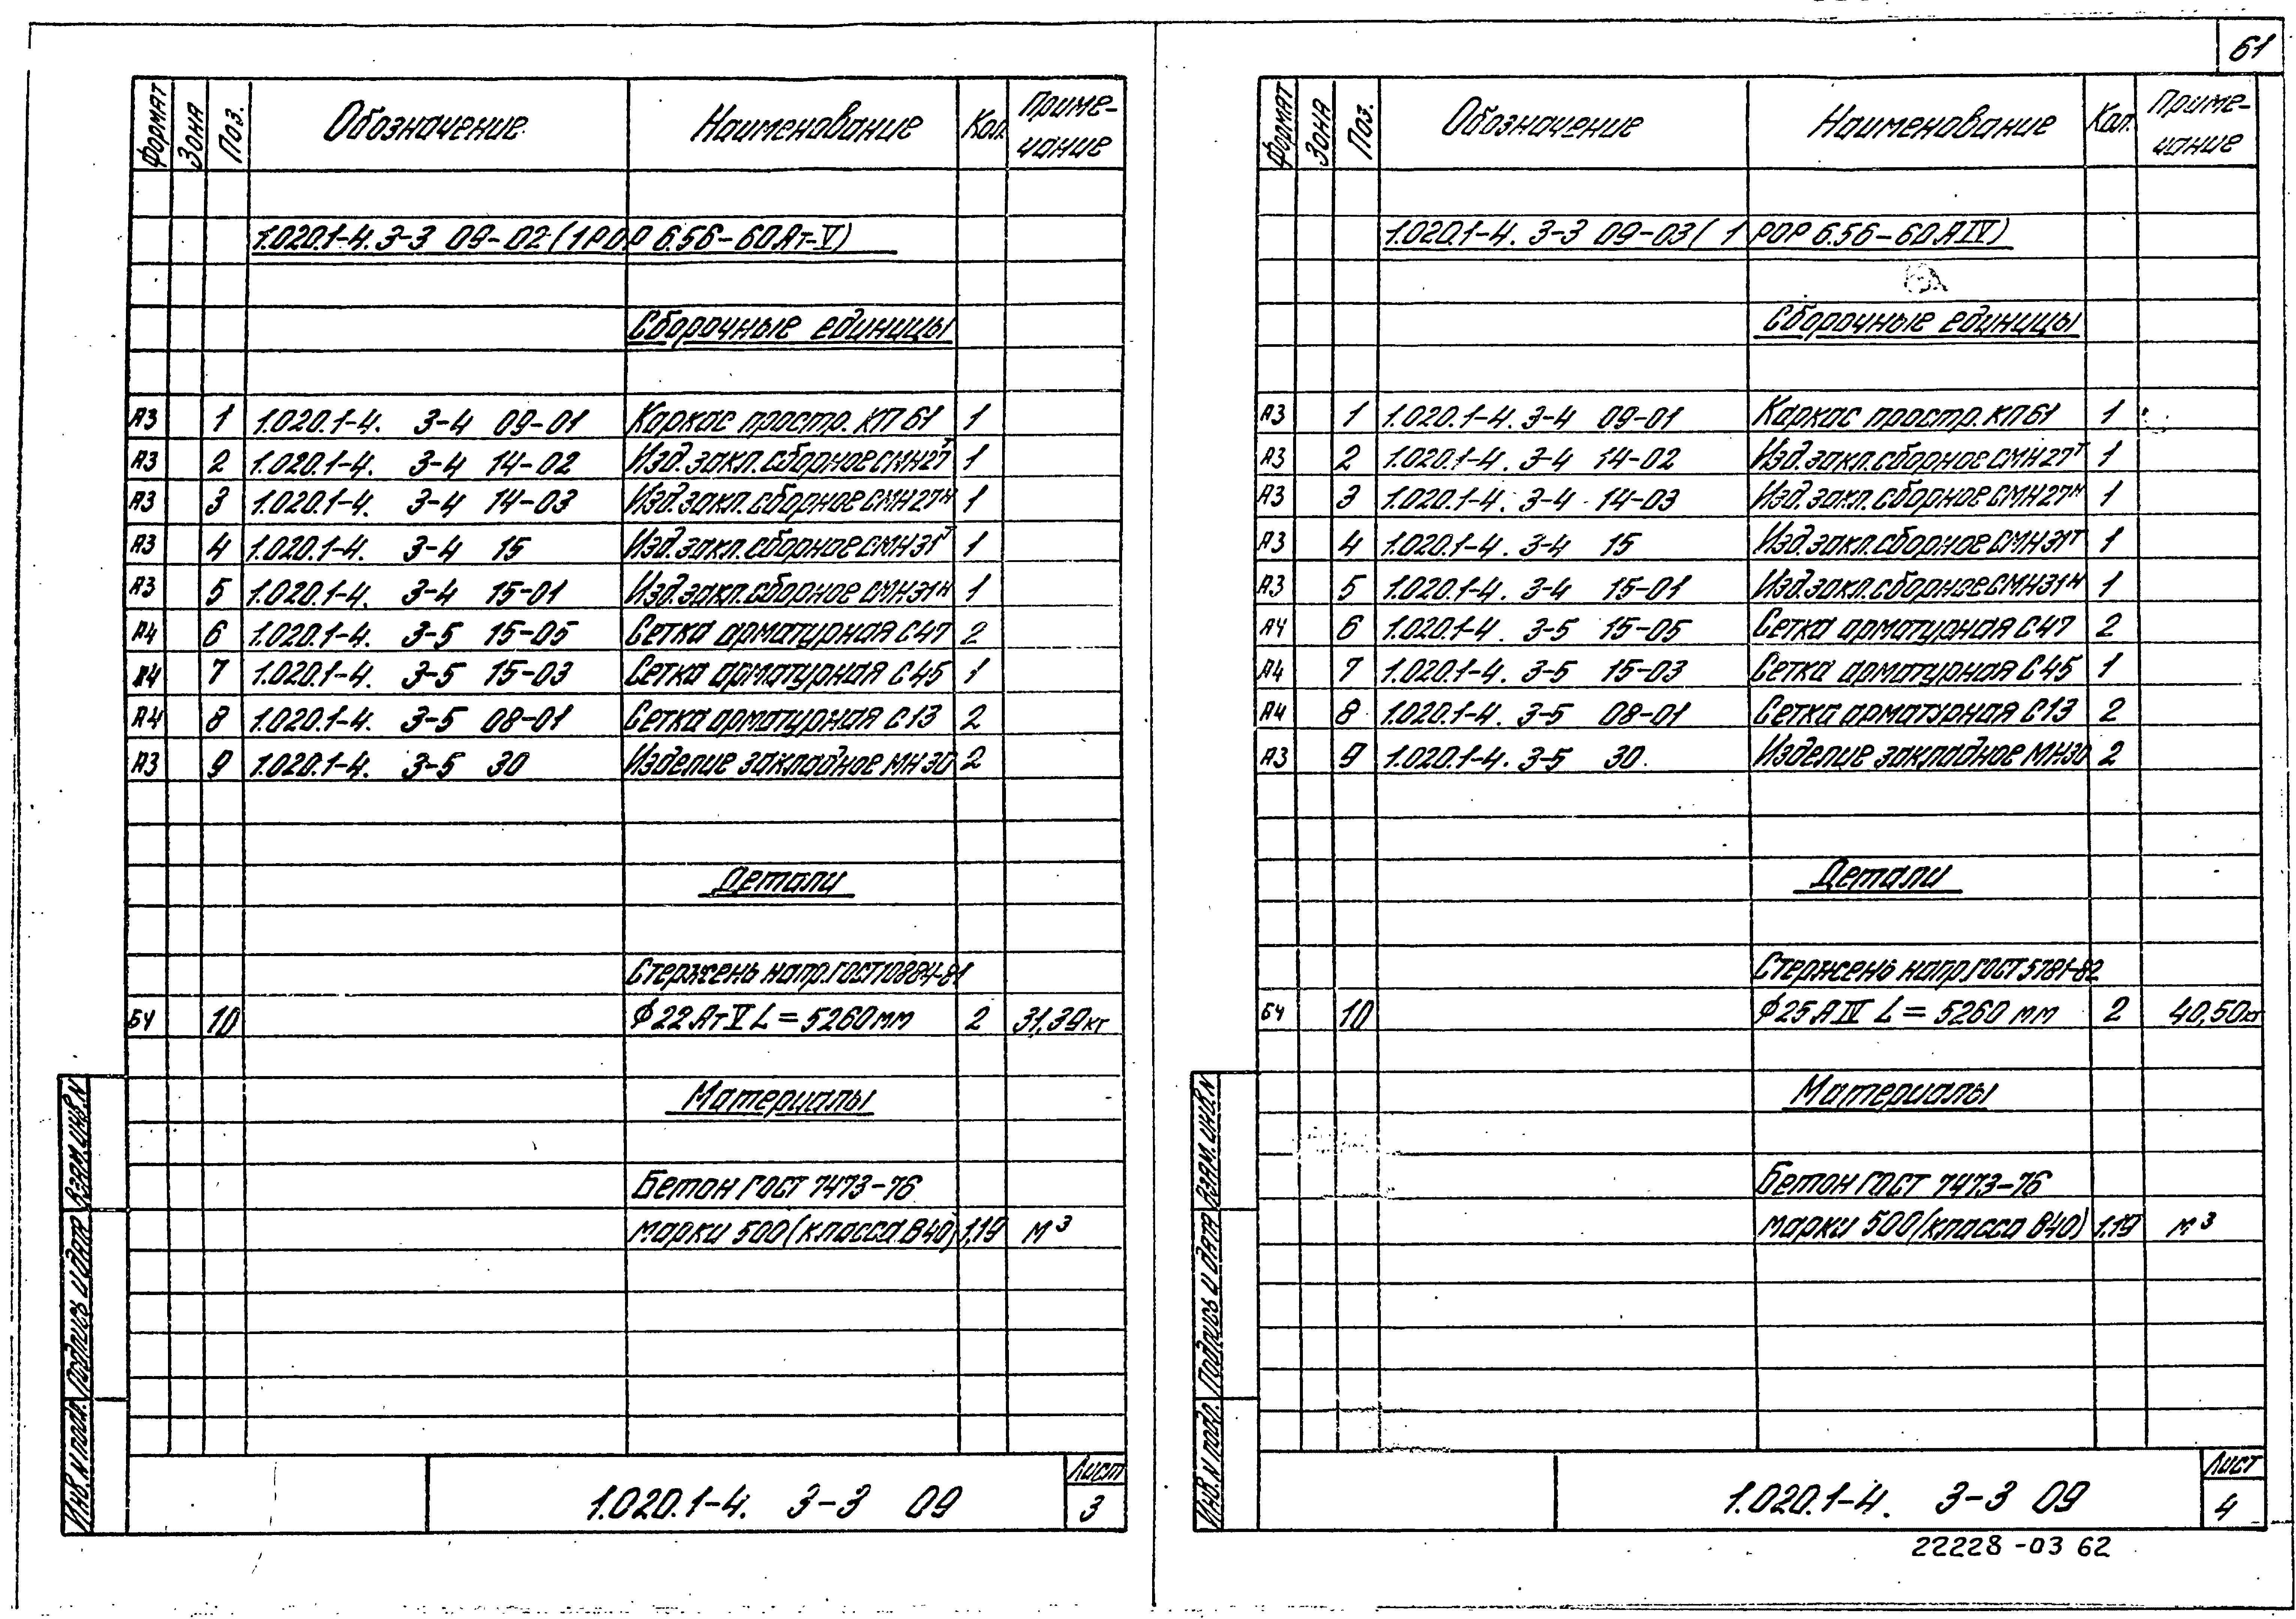 61
Формат Зона Поз. Обозначение Наименование Кол. Приме-
чание
1.020.1-4. 3-3 09-02 (1РОР 6.56-60Ат-V)
Сборочные единицы
А3 1 1.020.1-4. 3-4 09-01 Каркас простр. КП 61 1
А3 2 1.020.1-4. 3-4 14-02 Изд. закл. сборное СМН27т 1
А3 3 1.020.1-4. 3-4 14-03 Изд. закл. сборное СМН27н 1
А3 4 1.020.1-4. 3-4 15 Изд. закл. сборное СМН31т 1
А3 5 1.020.1-4. 3-4 15-01 Изд. закл. сборное СМН31н 1
А4 6 1.020.1-4. 3-5 15-05 Сетка арматурная С47 2
А4 7 1.020.1-4. 3-5 15-03 Сетка арматурная С45 1
А4 8 1.020.1-4. 3-5 08-01 Сетка арматурная С13 2
А3 9 1.020.1-4. 3-5 30 Изделие закладное МН30 2
Детали
Стержень напр. ГОСТ10884-81
БЧ 10 ф22АтV L=5260мм 2 31,39кг
Материалы
Бетон ГОСТ 7473-76
марки 500 (класса В40) 1,19 м³
Инв. N подл. Подпись и дата Взам. инв. N
1.020.1-4. 3-3 09
Лист
3
Формат Зона Поз. Обозначение Наименование Кол. Приме-
чание
1.020.1-4. 3-3 09-03 (1 РОР 6.56-60АIV)
Сборочные единицы
А3 1 1.020.1-4. 3-4 09-01 Каркас простр. КП61 1
А3 2 1.020.1-4. 3-4 14-02 Изд. закл. сборное СМН27т 1
А3 3 1.020.1-4. 3-4 14-03 Изд. закл. сборное СМН27н 1
А3 4 1.020.1-4. 3-4 15 Изд. закл. сборное СМН31т 1
А3 5 1.020.1-4. 3-4 15-01 Изд. закл. сборное СМН31н 1
А4 6 1.020.1-4. 3-5 15-05 Сетка арматурная С47 2
А4 7 1.020.1-4. 3-5 15-03 Сетка арматурная С45 1
А4 8 1.020.1-4. 3-5 08-01 Сетка арматурная С13 2
А3 9 1.020.1-4. 3-5 30 Изделие закладное МН30 2
Детали
Стержень напр. ГОСТ 5781-82
БЧ 10 ф25АIV L=5260 мм 2 40,50кг
Материалы
Бетон ГОСТ 7473-76
марки 500 (класса В40) 1,19 м³
Инв. N подл. Подпись и дата Взам. инв. N
1.020.1-4. 3-3 09
Лист
4
22228-03 62